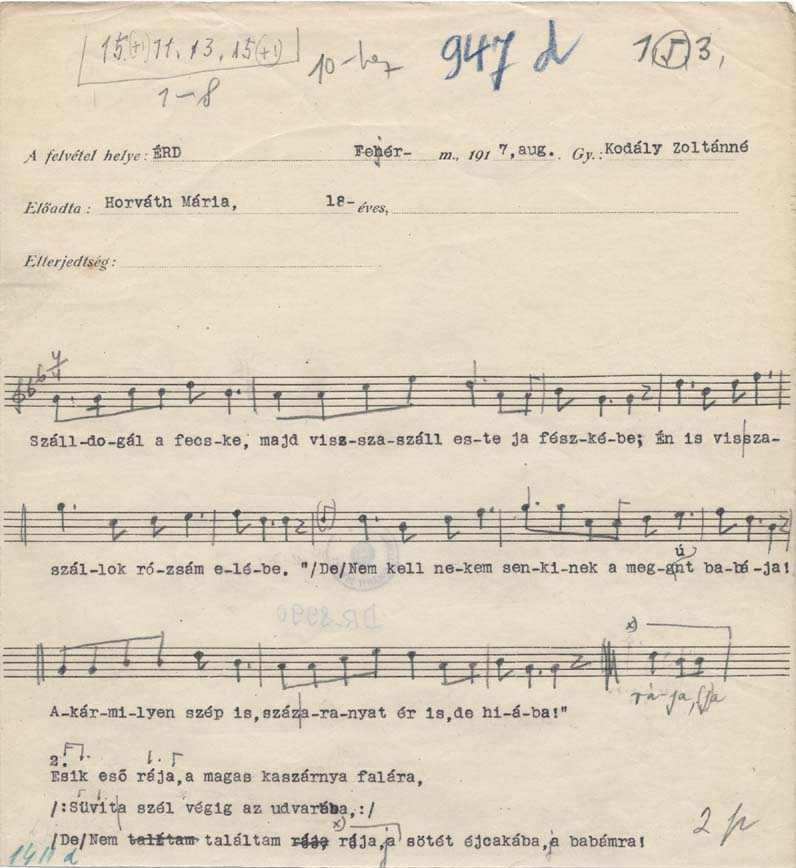 15(+1) 11, 13, 15(+1) 10-hez 947 d 1 (5) 3,
1-8
A felvétel helye: ÉRD Fejér- m., 1917, aug. Gy.: Kodály Zoltánné
Előadta: Horváth Mária, 18-éves,
Elterjedtség:
Száll-do-gál a fecs-ke, majd visz-sza-száll es-te ja fész-ké-be; Én is visza-
szál-lok ró-zsám e-lé-be. "/De/Nem kell ne-kem sen-ki-nek a meg-únt ba-bá-ja!
DR.8990
x)
A-kár-mi-lyen szép is,száz a-ra-nyat ér is,de hi-á-ba!"
rá-ja,
2.
Esik eső rája,a magas kaszárnya falára,
/:Süvít a szél végig az udvarába,:/
x)
/De/Nem talítam találtam rája, rája,a sötét éjcakába,a babámra!
2 p
1411 d